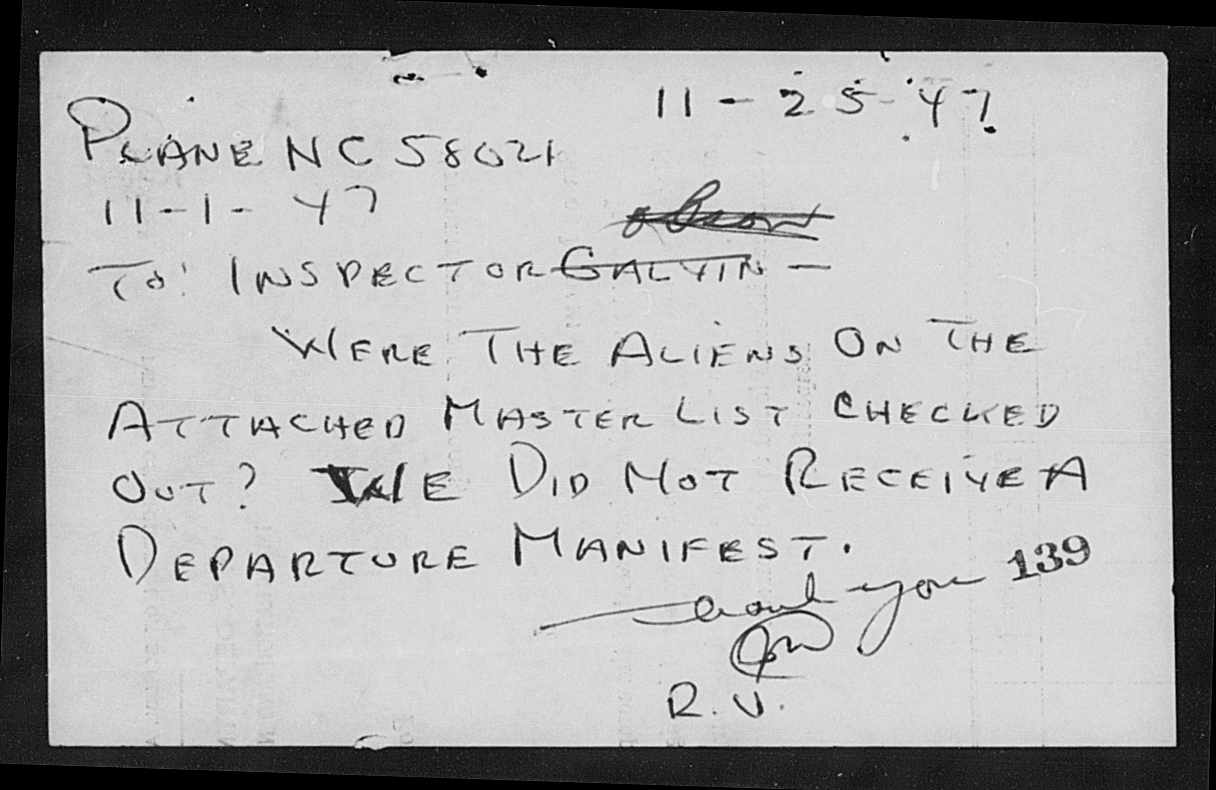 11-25-47.
PLANE NC 58021
11-1-47
TO: INSPECTOR GALVIN —
WERE THE ALIENS ON THE
ATTACHED MASTER LIST CHECKED
OUT? WE DID NOT RECEIVE A
DEPARTURE MANIFEST.
Thank you 139
R.U.